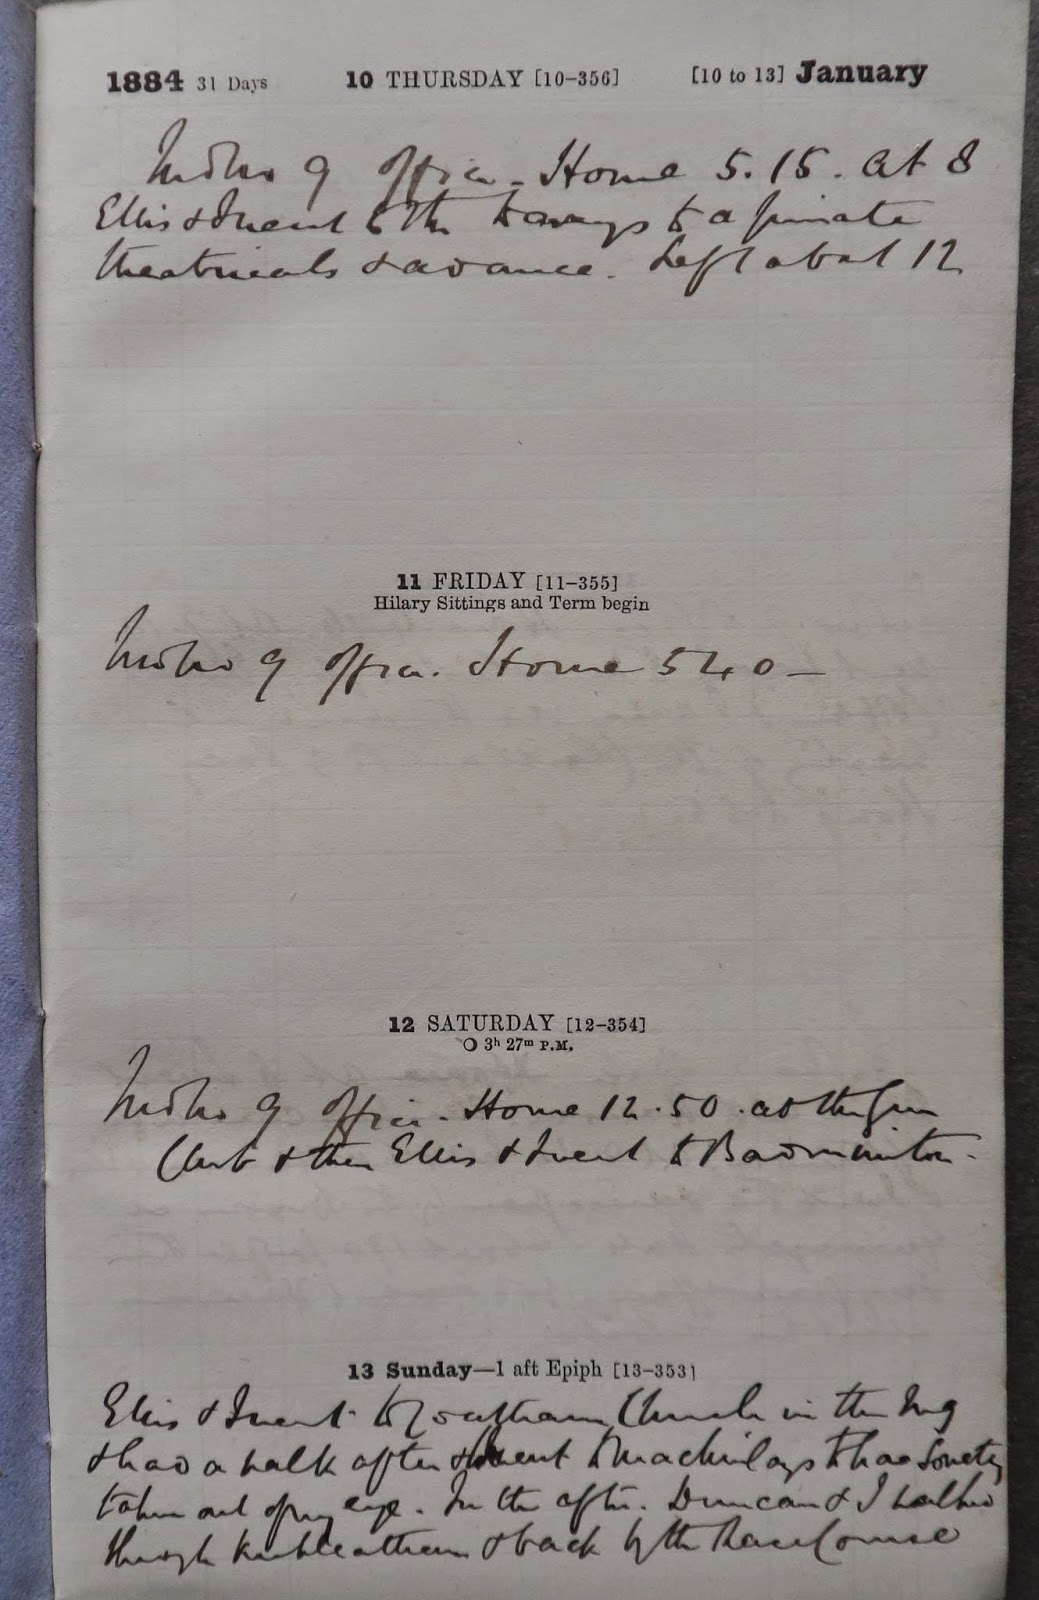 1884 31 Days 10 THURSDAY [10-356] [10 to 13] January
9 office. Home 5.15. at 8
Ellis & I went to the to a private
theatricals & a dance. Left about 12
11 FRIDAY [11-355]
Hilary Sittings and Term begin
9 office. Home 5 40 –
12 SATURDAY [12-354]
O 3h 27m P.M.
9 office. Home 12.50. at the Gun
Club & then Ellis & I went to Badminton.
13 Sunday—1 aft Epiph [13-353]
Ellis & I went to Church in the
& had a walk after & went to to have
taken out of my eye. In the after. Duncan & I walked
through & back by the Race Course